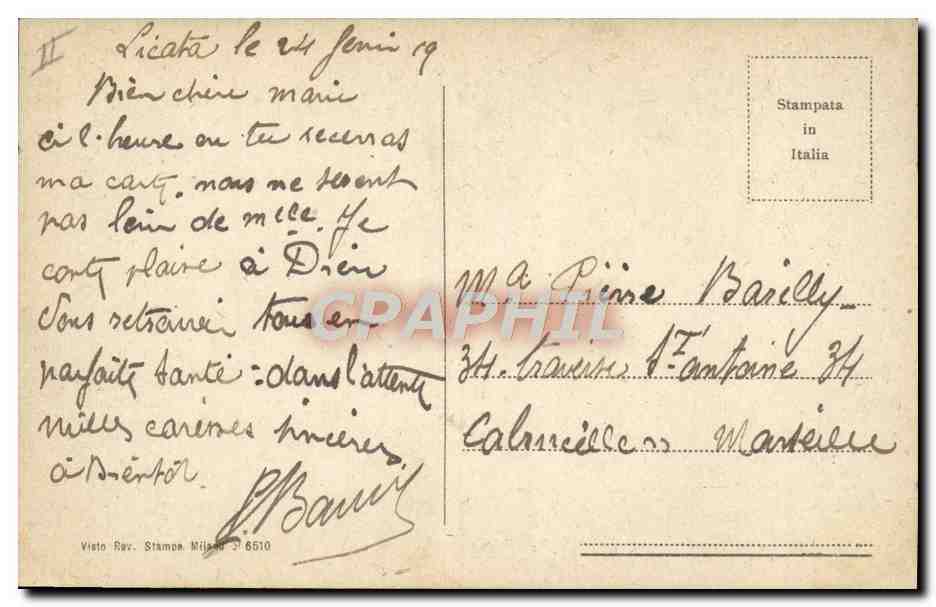 II
Licata le 24 fevrir 19
Bien chère marie
ci l'heure ou tu recevras
ma carte, nous ne seront
pas loin de mlle. Je
conte plaire à Dieu
Vous retrouver tous en
parfaite santé = dans l'attente
milles caresses sincères
à Bientôt.
P. Barilly
Visto Rev. Stampa Milano 3 6510
Stampata
in
Italia
Ma Pierre Barilly
34. traverse St antoine 34
Cabucelle Marseille
CARAPHIL